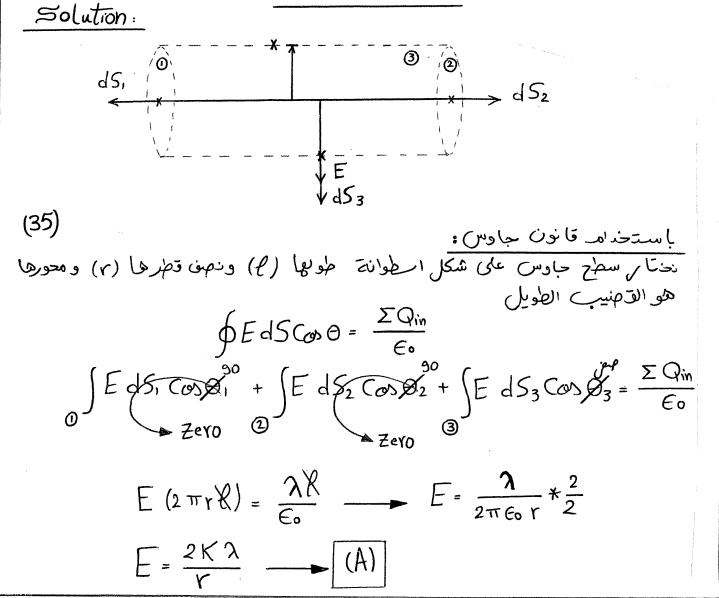 Solution:
① ③ ②
dS₁ dS₂
E
dS₃
(35)
باستخدام قانون جاوس:
نختار سطح جاوس على شكل اسطوانة طولها (ℓ) ونصف قطرها (r) ومحورها
هو القضيب الطويل
∮ E dS Cos θ = ΣQin / ε₀
① ∫ E dS₁ Cos θ₁ 90 + ② ∫ E dS₂ Cos θ₂ 90 + ③ ∫ E dS₃ Cos θ₃ صفر = ΣQin / ε₀
Zero Zero
E (2πrℓ) = λℓ / ε₀ → E = λ / 2πε₀r * 2/2
E = 2Kλ / r → (A)